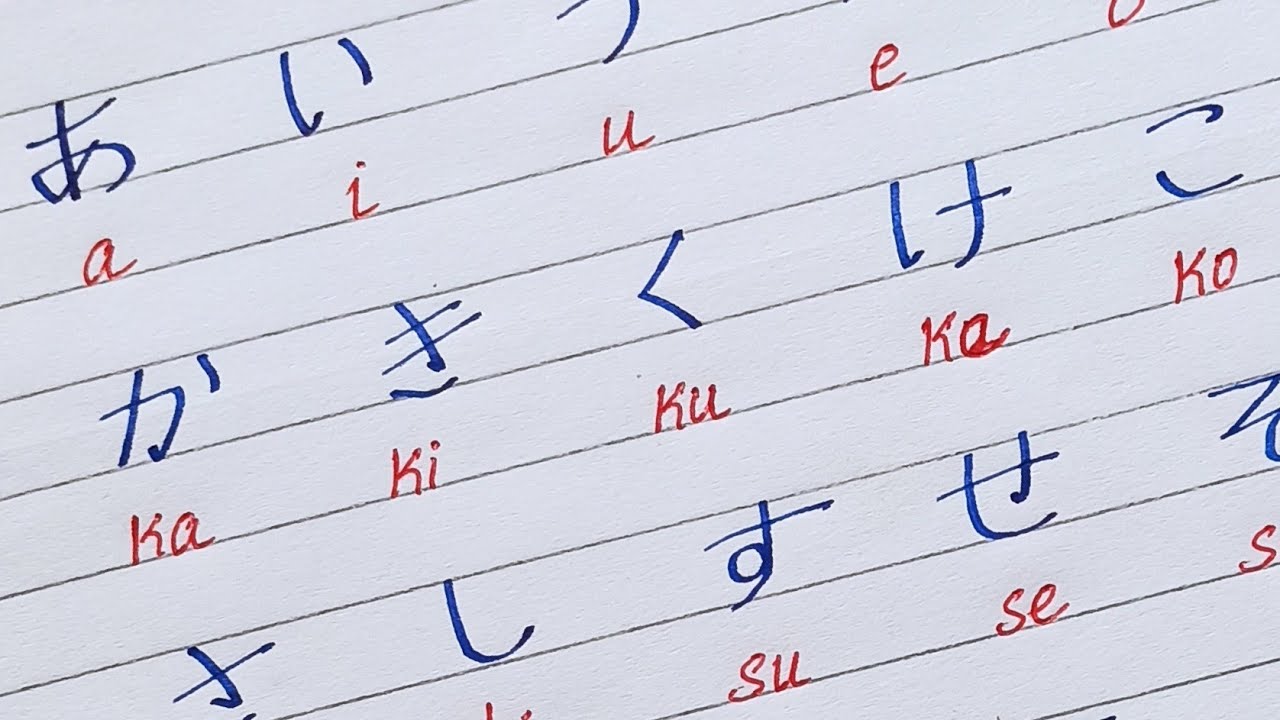 あ い う
a i u e o
か き く け こ
ka ki ku ka ko
さ し す せ そ
su se s